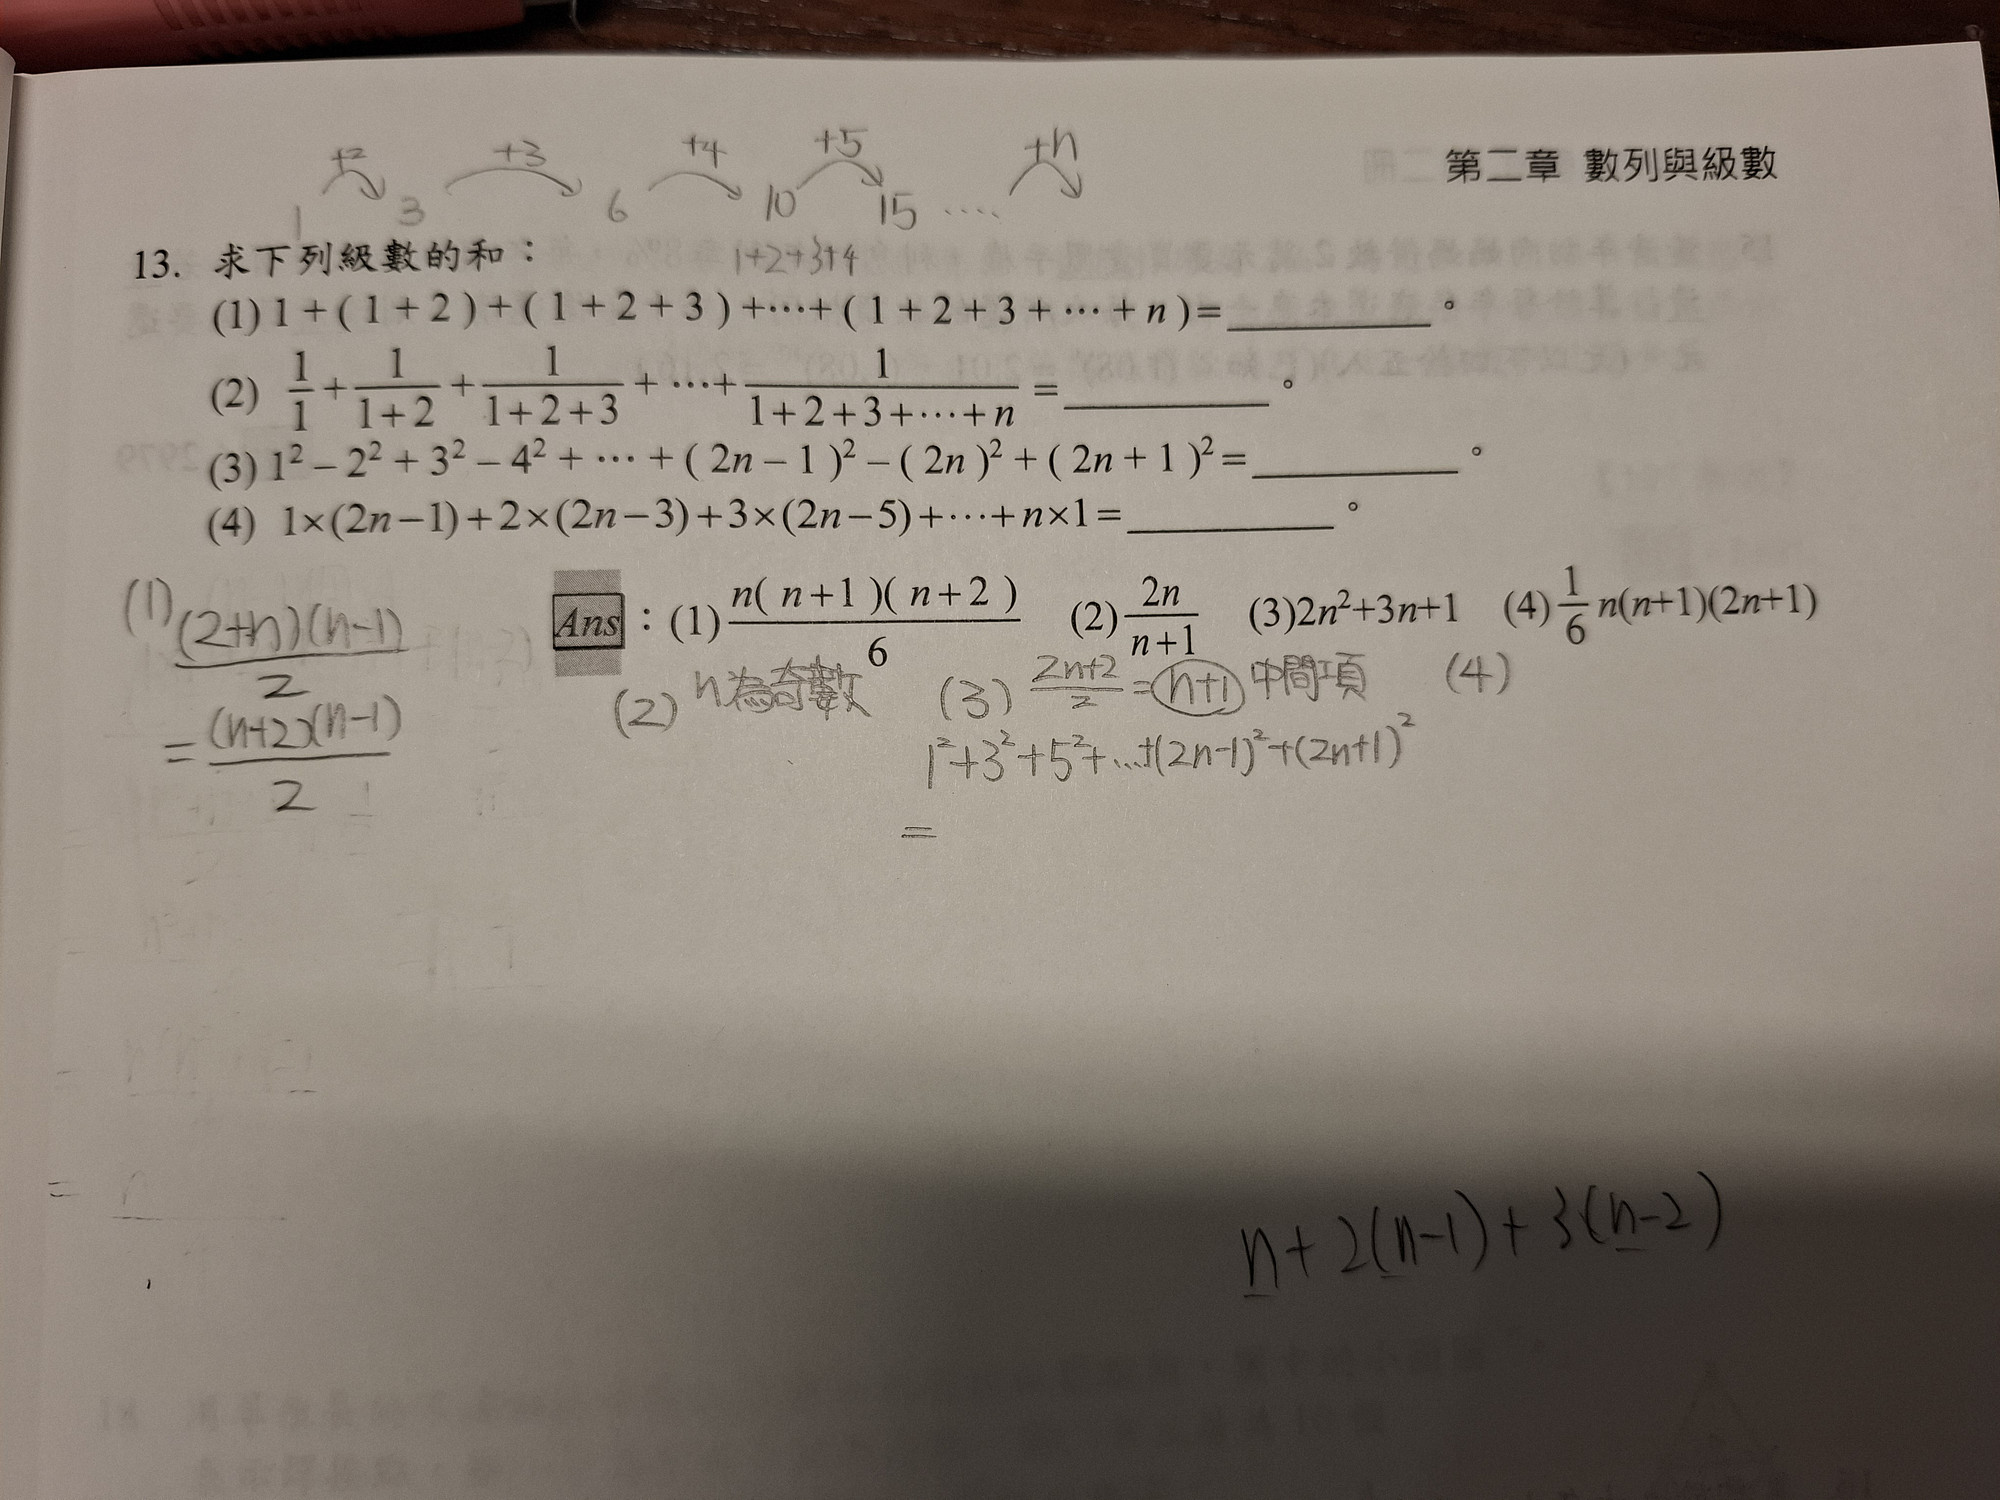 +2 +3 +4 +5 +n
1 3 6 10 15 ....
第二章 數列與級數
13. 求下列級數的和：
1+2+3+4
(1) 1+(1+2)+(1+2+3)+⋯+(1+2+3+⋯+n)=＿＿＿＿。
(2) 1/1 + 1/(1+2) + 1/(1+2+3) + ⋯ + 1/(1+2+3+⋯+n) =＿＿＿＿。
(3) 1² – 2² + 3² – 4² + ⋯ + ( 2n – 1 )² – ( 2n )² + ( 2n + 1 )² =＿＿＿＿。
(4) 1×(2n−1)+2×(2n−3)+3×(2n−5)+⋯+n×1=＿＿＿＿。
Ans：(1) n( n+1 )( n+2 )/6 (2) 2n/(n+1) (3)2n²+3n+1 (4) 1/6 n(n+1)(2n+1)
(1) (2+n)(n-1)/2
= (n+2)(n-1)/2
(2) n為奇數
(3) (2n+2)/2 = n+1 中間項
1²+3²+5²+...+(2n-1)²+(2n+1)²
=
(4)
n+2(n-1)+3(n-2)